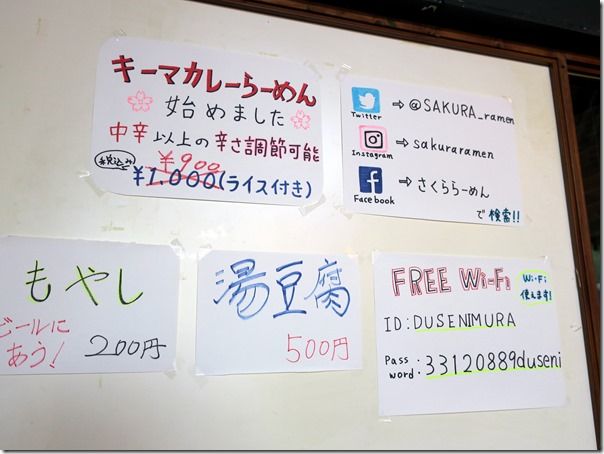 キーマカレーらーめん
始めました
中辛以上の辛さ調節可能
¥900
税込み
¥1.000(ライス付き)
Twitter → @SAKURA_ramen
Instagram → sakuraramen
Facebook → さくららーめん
で検索!!
もやし
ビールに
あう!
200円
湯豆腐
500円
FREE Wi-Fi
Wi-Fi
使えます!
ID:DUSENIMURA
Pass
word: 33120889duseni